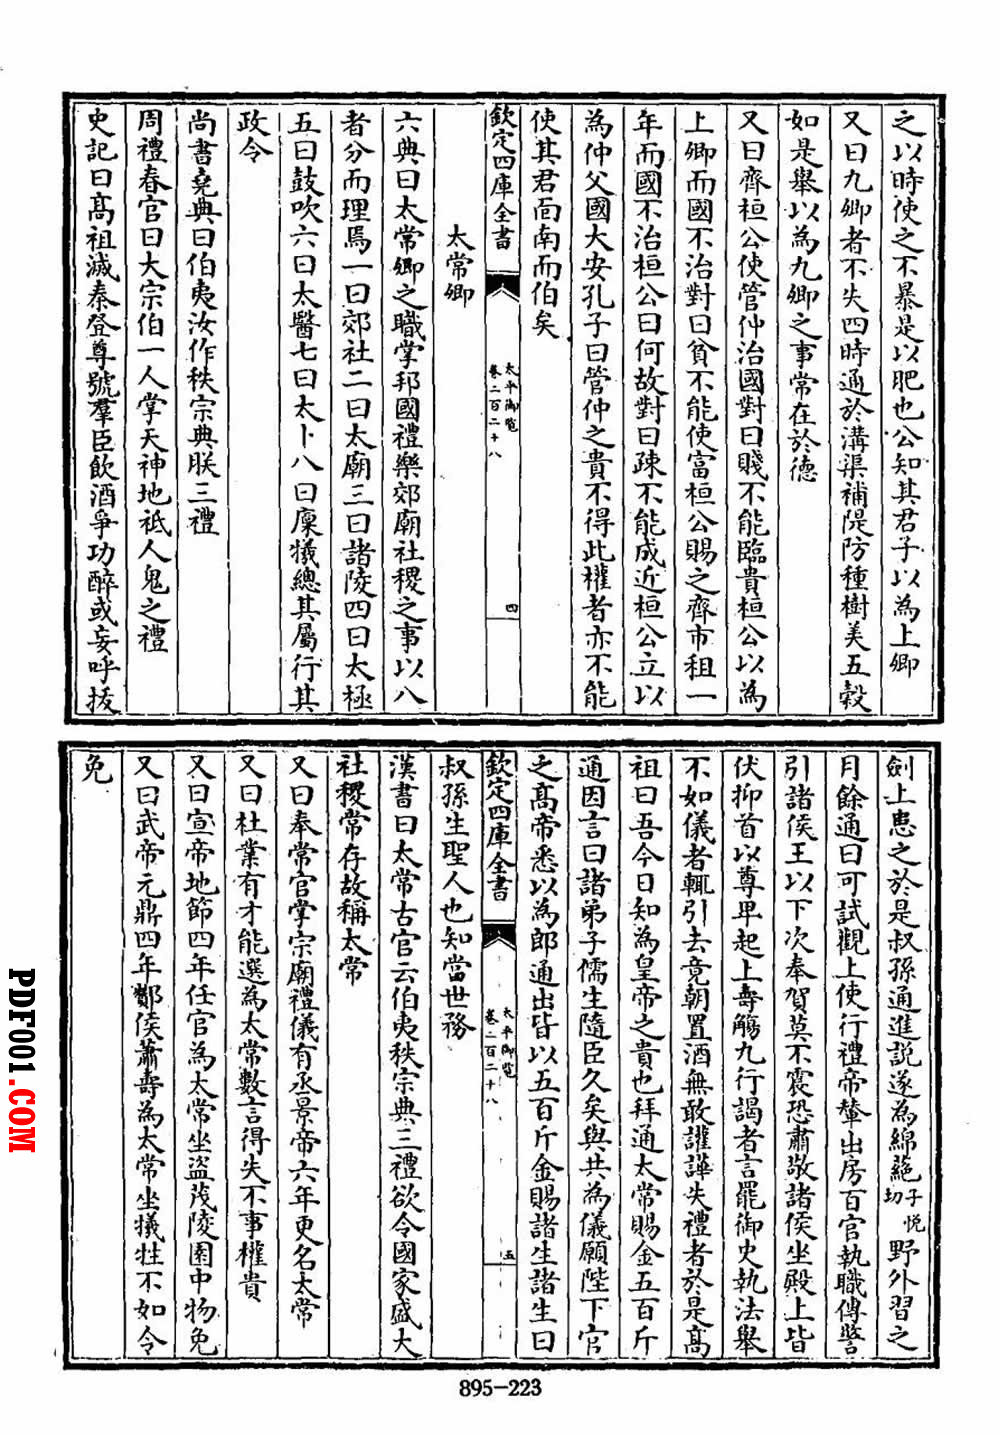 之以時使之不暴是以肥也公知其君子以為上卿
又曰九卿者不失四時通於溝渠補隄防種樹美五穀
如是舉以為九卿之事常在於德
又曰齊桓公使管仲治國對曰賤不能臨貴桓公以為
上卿而國不治對曰貧不能使富桓公賜之齊市租一
年而國不治桓公曰何故對曰疎不能成近桓公立以
為仲父國大安孔子曰管仲之貴不得此權者亦不能
使其君面南而伯矣
欽定四庫全書
太平御覧
卷二百二十八
四
太常卿
六典曰太常卿之職掌邦國禮樂郊廟社稷之事以八
者分而理焉一曰郊社二曰太廟三曰諸陵四曰太極
五曰鼓吹六曰太醫七曰太卜八曰廩犧總其屬行其
政令
尚書堯典曰伯夷汝作秩宗典朕三禮
周禮春官曰大宗伯一人掌天神地祗人鬼之禮
史記曰髙祖滅秦登尊號羣臣飲酒爭功醉或妄呼拔
劍上患之於是叔孫通進説遂為綿蕝子悅切野外習之
月餘通曰可試觀上使行禮帝輦出房百官執職傳警
引諸侯王以下次奉賀莫不震恐肅敬諸侯坐殿上皆
伏抑首以尊卑起上壽觴九行謁者言罷御史執法舉
不如儀者輒引去竟朝置酒無敢讙譁失禮者於是髙
祖曰吾今日知為皇帝之貴也拜通太常賜金五百斤
通因言曰諸弟子儒生隨臣久矣與共為儀願陛下官
之髙帝悉以為郎通出皆以五百斤金賜諸生諸生曰
欽定四庫全書
太平御覧
卷二百二十八
五
叔孫生聖人也知當世務
漢書曰太常古官云伯夷秩宗典三禮欲令國家盛大
社稷常存故稱太常
又曰奉常官掌宗廟禮儀有丞景帝六年更名太常
又曰杜業有才能選為太常數言得失不事權貴
又曰宣帝地節四年任官為太常坐盜茂陵園中物免
又曰武帝元鼎四年酇侯蕭壽為太常坐犧牲不如令
免
895-223
PDF001.COM